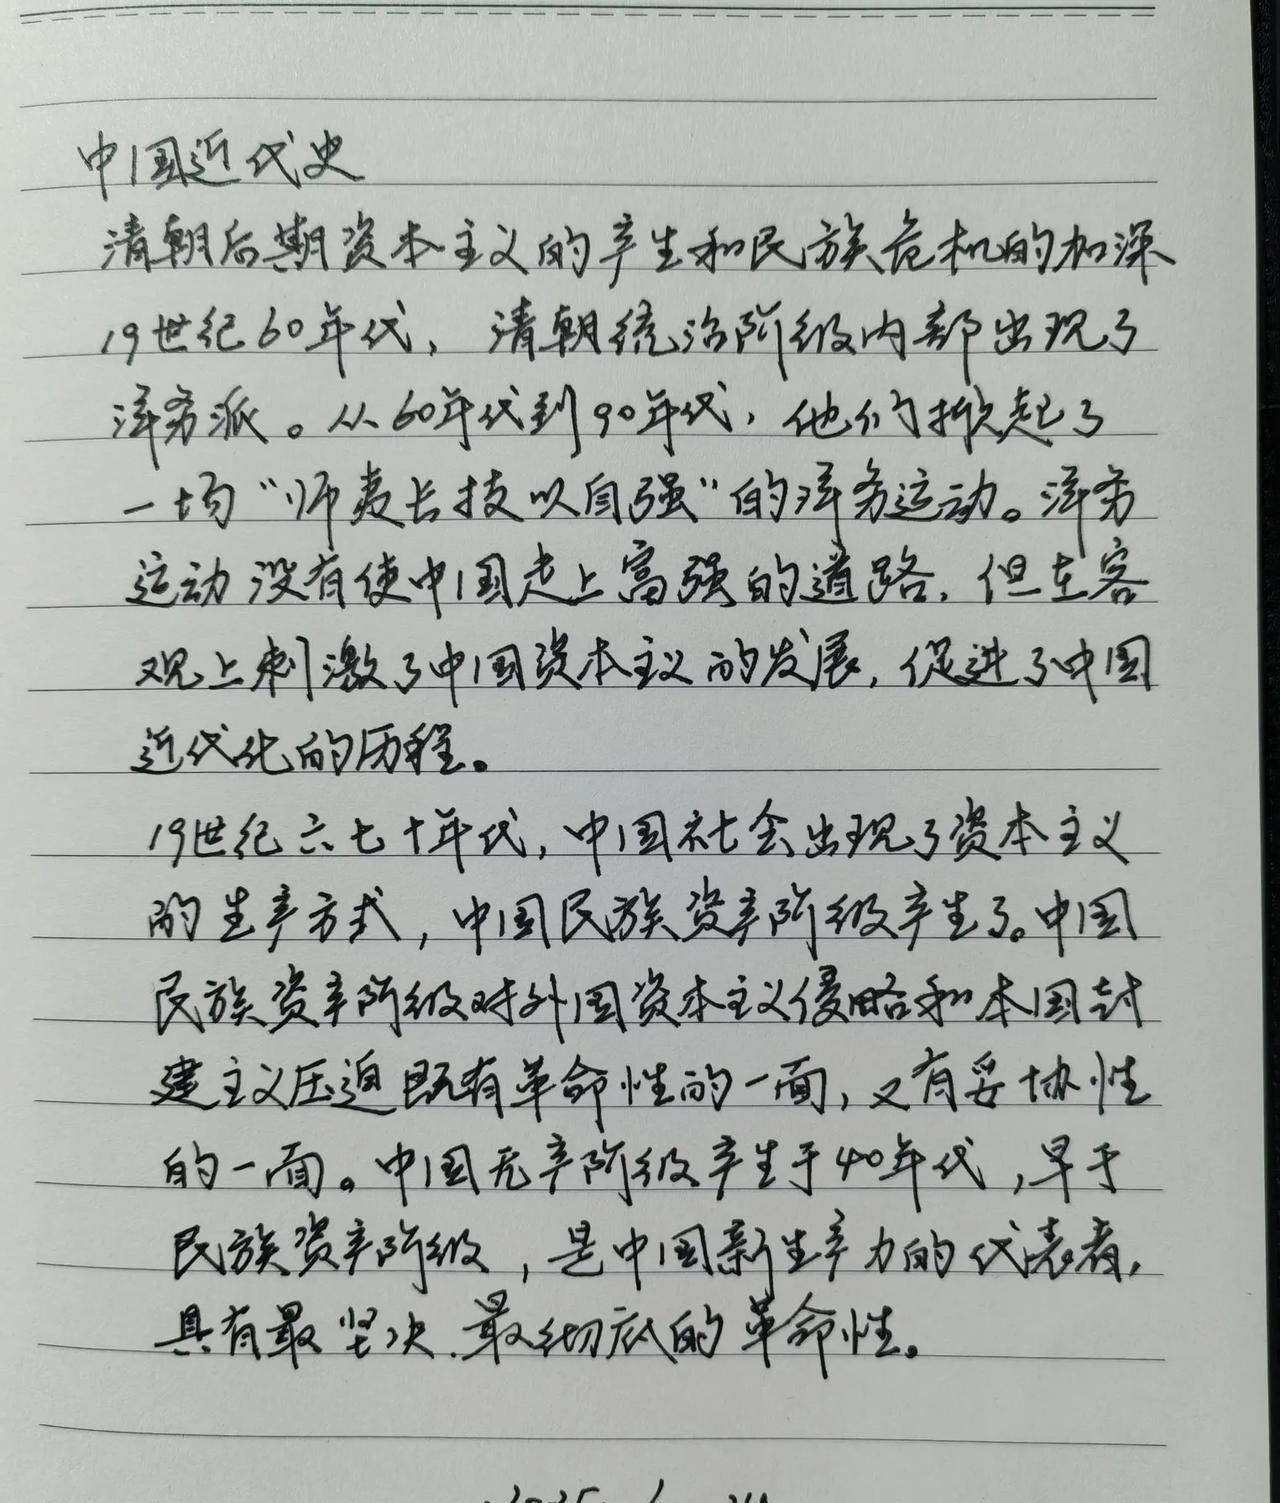 中国近代史
清朝后期资本主义的产生和民族危机的加深
19世纪60年代，清朝统治阶级内部出现了
洋务派。从60年代到90年代，他们掀起了
一场“师夷长技以自强”的洋务运动。洋务
运动没有使中国走上富强的道路，但在客
观上刺激了中国资本主义的发展，促进了中国
近代化的历程。
19世纪六七十年代，中国社会出现了资本主义
的生产方式，中国民族资产阶级产生了。中国
民族资产阶级对外国资本主义侵略和本国封
建主义压迫既有革命性的一面，又有妥协性
的一面。中国无产阶级产生于40年代，早于
民族资产阶级，是中国新生产力的代表者，
具有最坚决、最彻底的革命性。